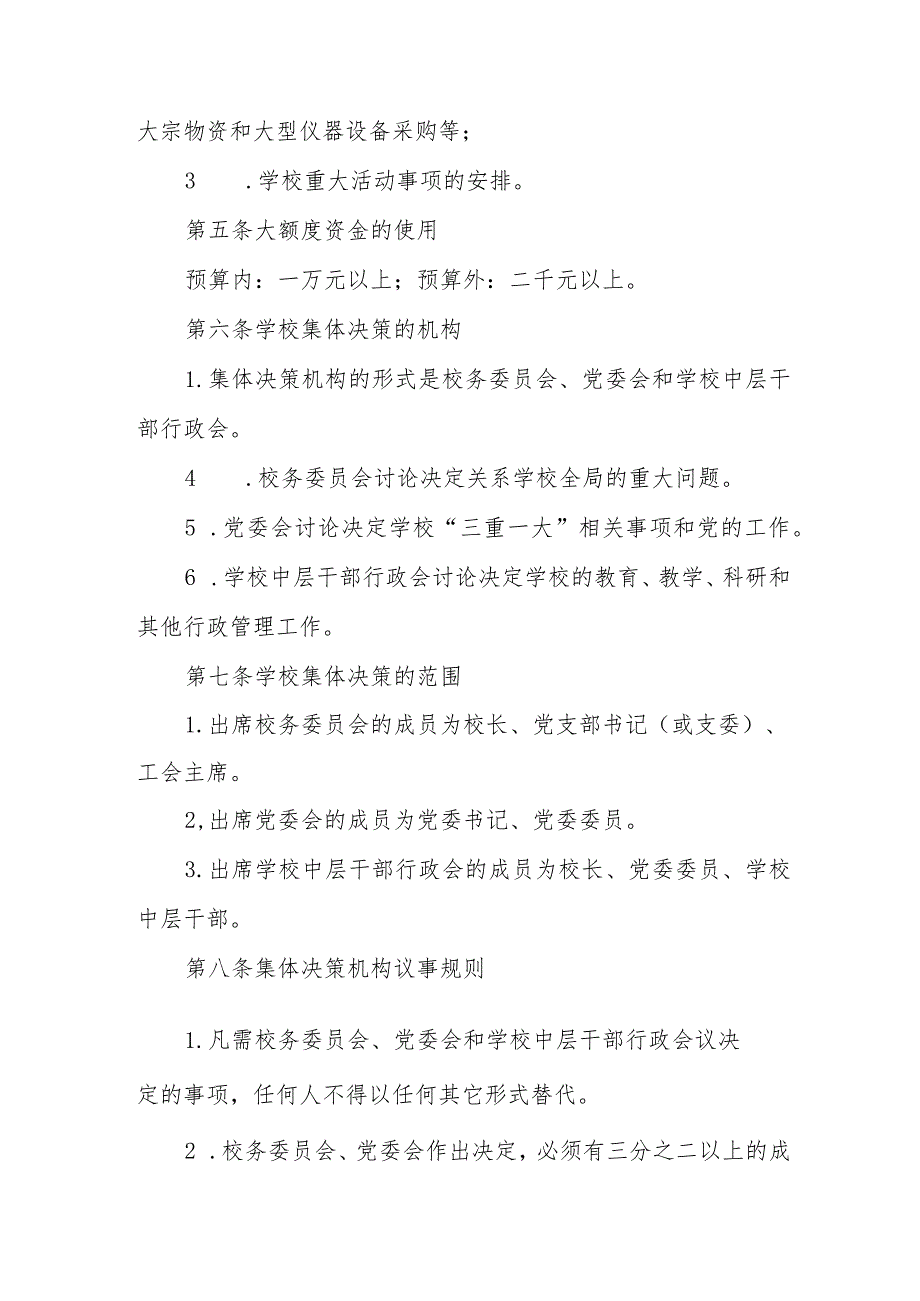 大宗物资和大型仪器设备采购等；
3 .学校重大活动事项的安排。
第五条大额度资金的使用
预算内：一万元以上；预算外：二千元以上。
第六条学校集体决策的机构
1.集体决策机构的形式是校务委员会、党委会和学校中层干
部行政会。
4 .校务委员会讨论决定关系学校全局的重大问题。
5 .党委会讨论决定学校“三重一大”相关事项和党的工作。
6 .学校中层干部行政会讨论决定学校的教育、教学、科研和
其他行政管理工作。
第七条学校集体决策的范围
1.出席校务委员会的成员为校长、党支部书记（或支委）、
工会主席。
2,出席党委会的成员为党委书记、党委委员。
3.出席学校中层干部行政会的成员为校长、党委委员、学校
中层干部。
第八条集体决策机构议事规则
1.凡需校务委员会、党委会和学校中层干部行政会议决
定的事项，任何人不得以任何其它形式替代。
2 .校务委员会、党委会作出决定，必须有三分之二以上的成